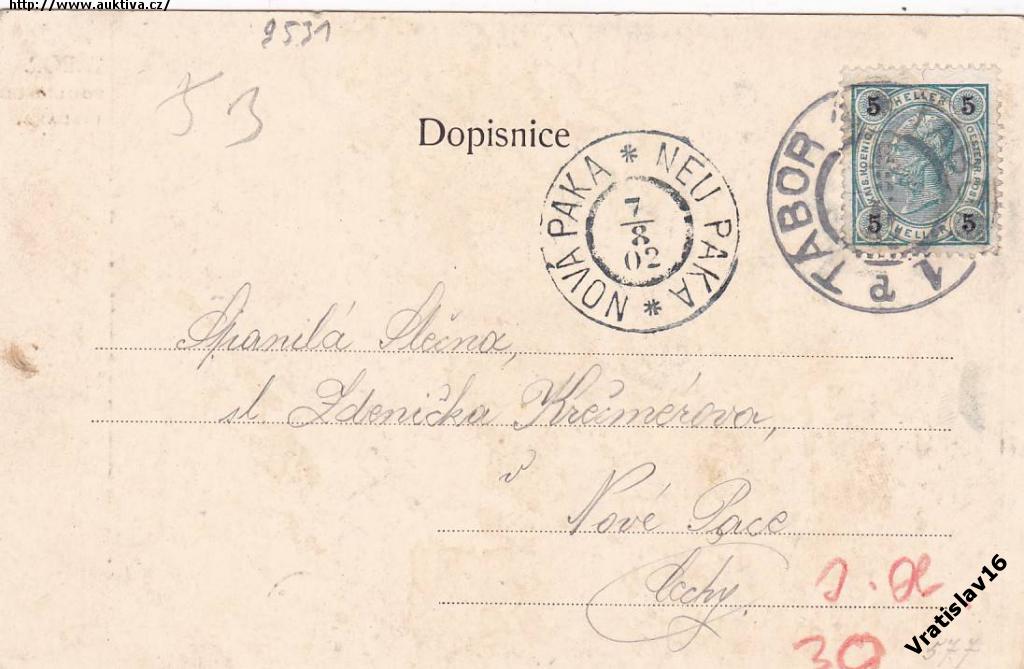 http://www.auktiva.cz/
9531
53
Dopisnice
NOVÁ PAKA * NEU PAKA *
7/8
02
TÁBOR 1
5 HELLER 5
5 HELLER 5
Spanilá Slečna,
sl. Zdenička Krěčmérova,
v
Nové Pace
Čechy.
30
577
Vratislav16